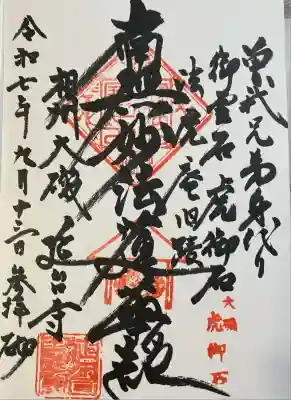 曽我兄弟身代り
御霊石 虎御石
法虎庵旧蹟
南無妙法蓮華経
相州大磯 延台寺
令和七年九月十三日参拝
大磯
虎御石